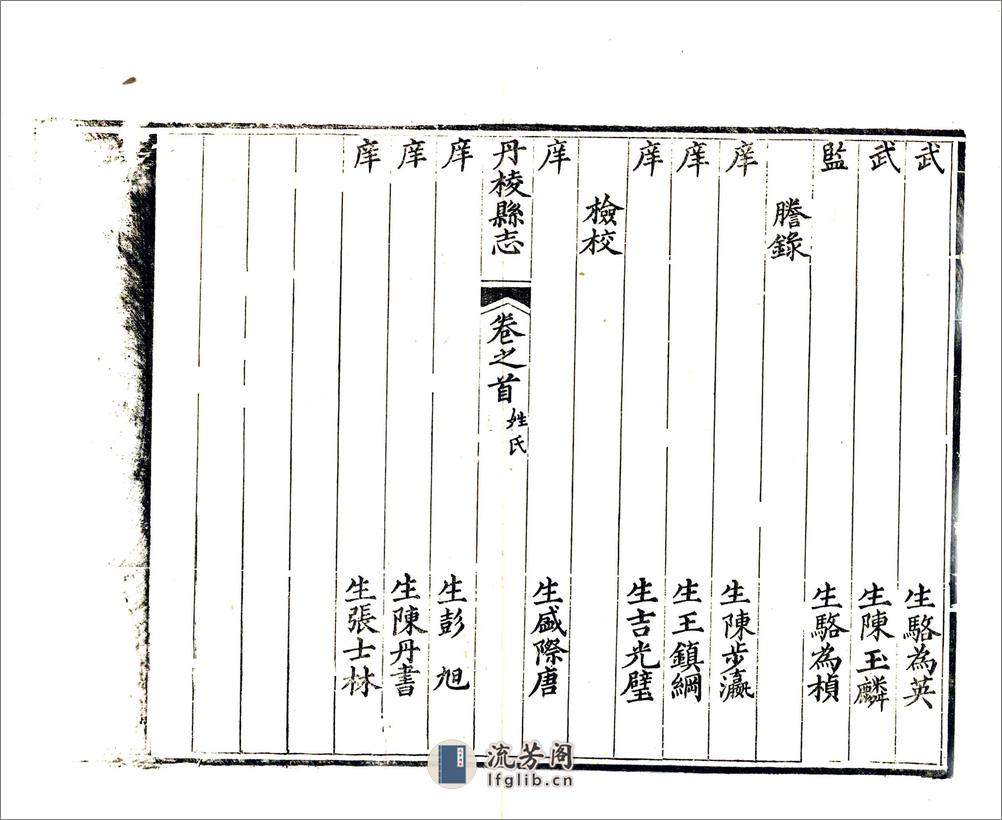 武生駱為英
武生陳玉麟
監生駱為楨
謄錄
庠生陳步瀛
庠生王鎮綱
庠生吉光璧
檢校
庠生盛際唐
丹棱縣志 卷之首 姓氏
庠生彭旭
庠生陳丹書
庠生張士林
流芳阁
lfglib.cn